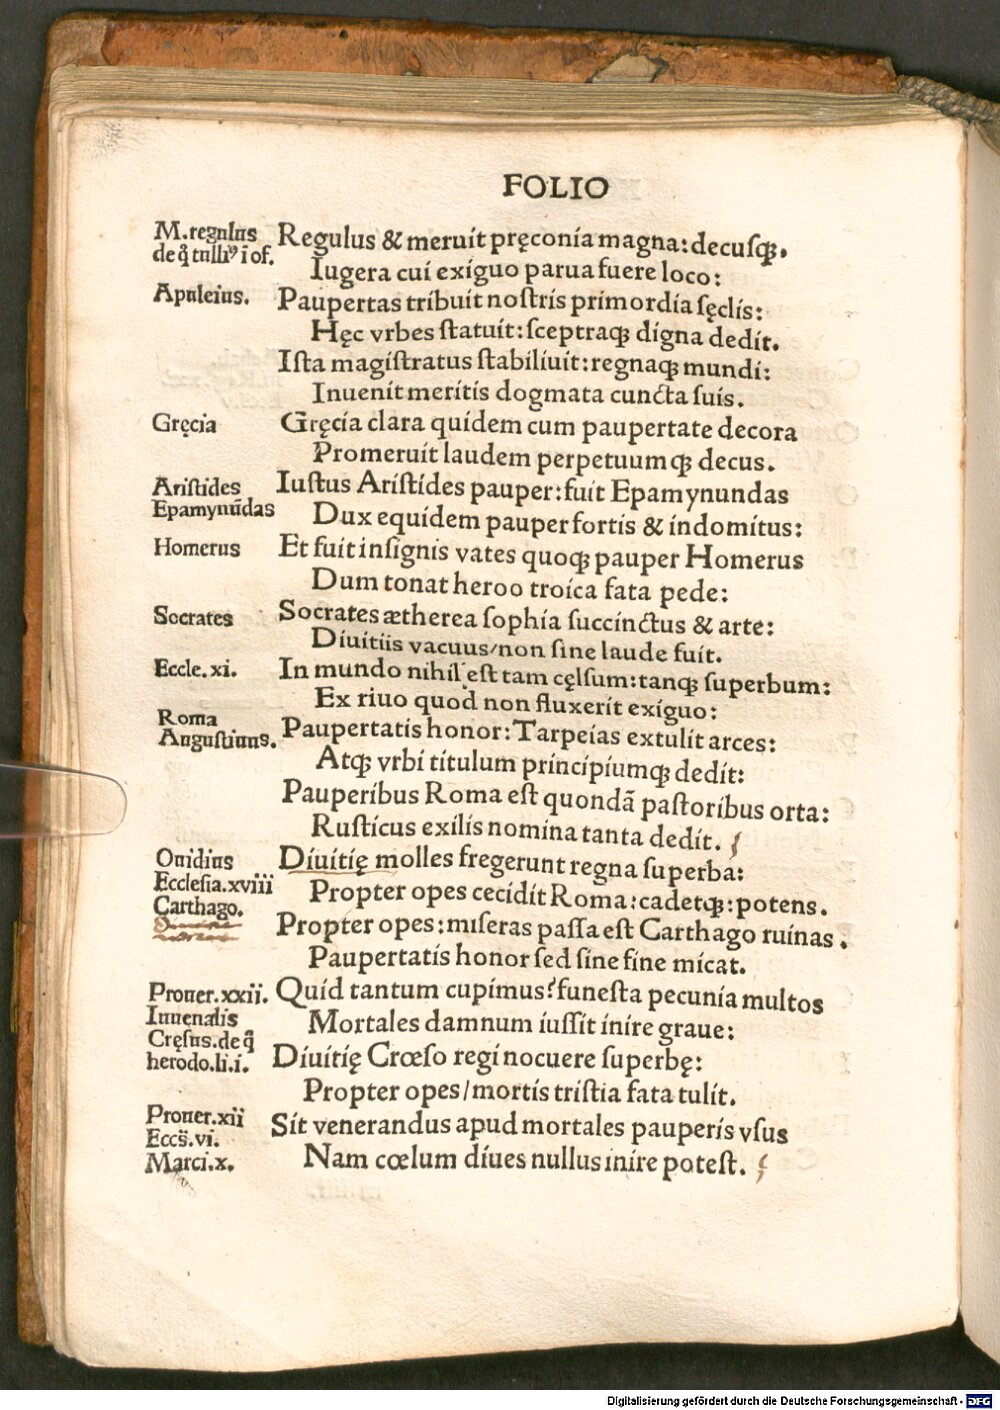 FOLIO
M.regulus
de q̃ tulliꝰ i of.
Regulus & meruit pręconia magna: decusq̃.
Iugera cui exiguo parua fuere loco:
Apuleius.
Paupertas tribuit nostris primordia sęclis:
Hęc vrbes statuit: sceptraq̃ digna dedit.
Ista magistratus stabiliuit: regnaq̃ mundi:
Inuenit meritis dogmata cuncta suis.
Gręcia
Gręcia clara quidem cum paupertate decora
Promeruit laudem perpetuumq̃ decus.
Aristides
Epamynũdas
Iustus Aristides pauper: fuit Epamynundas
Dux equidem pauper fortis & indomitus:
Homerus
Et fuit insignis vates quoq̃ pauper Homerus
Dum tonat heroo troica fata pede:
Socrates
Socrates ætherea sophia succinctus & arte:
Diuitiis vacuus/non sine laude fuit.
Eccle.xi.
In mundo nihil est tam cęlsum: tanq̃ superbum:
Ex riuo quod non fluxerit exiguo:
Roma
Augustinus.
Paupertatis honor: Tarpeias extulit arces:
Atq̃ vrbi titulum principiumq̃ dedit:
Pauperibus Roma est quondã pastoribus orta:
Rusticus exilis nomina tanta dedit.
Ouidius
Ecclesia.xviii
Carthago.
Diuitię molles fregerunt regna superba:
Propter opes cecidit Roma: cadetq̃: potens.
Propter opes: miseras passa est Carthago ruinas.
Paupertatis honor sed sine fine micat.
Prouer.xxii.
Iuuenalis
Cręsus.de q̃
herodo.li.i.
Quid tantum cupimus? funesta pecunia multos
Mortales damnum iussit inire graue:
Diuitię Crœso regi nocuere superbę:
Propter opes/mortis tristia fata tulit.
Prouer.xii
Eccs̃.vi.
Marci.x.
Sit venerandus apud mortales pauperis vsus
Nam cœlum diues nullus inire potest.
Digitalisierung gefördert durch die Deutsche Forschungsgemeinschaft - DFG